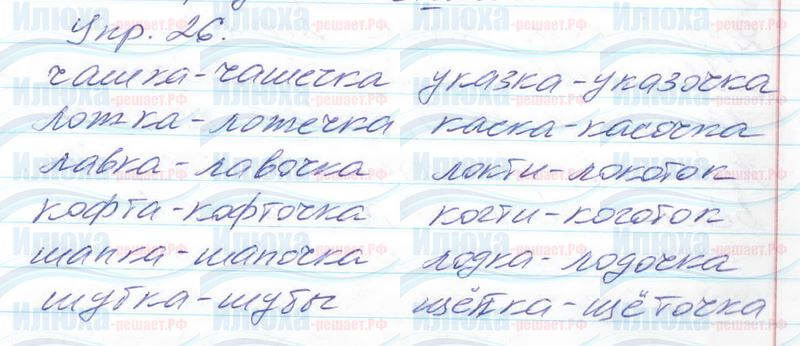 Упр. 26.
чашка-чашечка указка-указочка
ложка-ложечка каска-касочка
лавка-лавочка локти-локоток
кофта-кофточка когти-коготок
шапка-шапочка лодка-лодочка
шубка-шубы щётка-щёточка
Илюха-решает.РФ